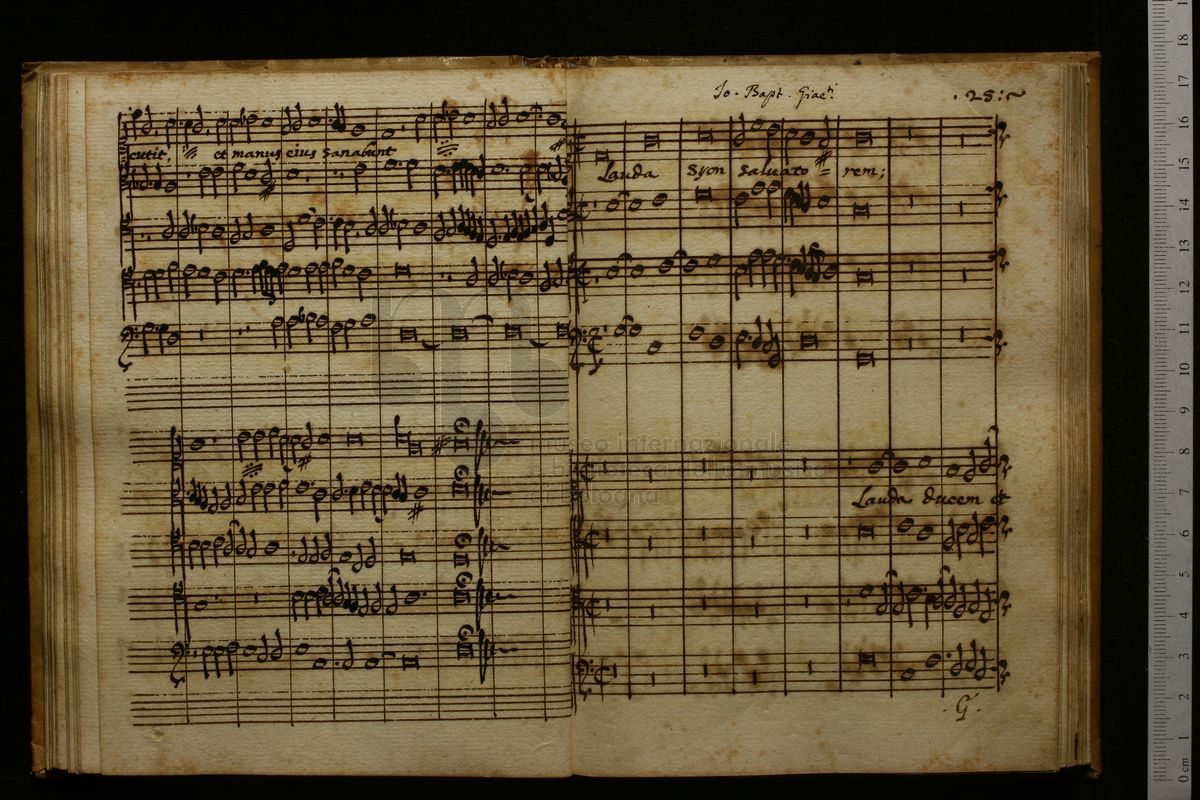 cutit, et manus eius sanabunt
Jo. Bapt. Giac.
. 25 :
Lauda Syon saluato = rem;
Lauda ducem et
. G .
museo internazionale
e biblioteca della musica
di bologna
0 cm 1 2 3 4 5 6 7 8 9 10 11 12 13 14 15 16 17 18